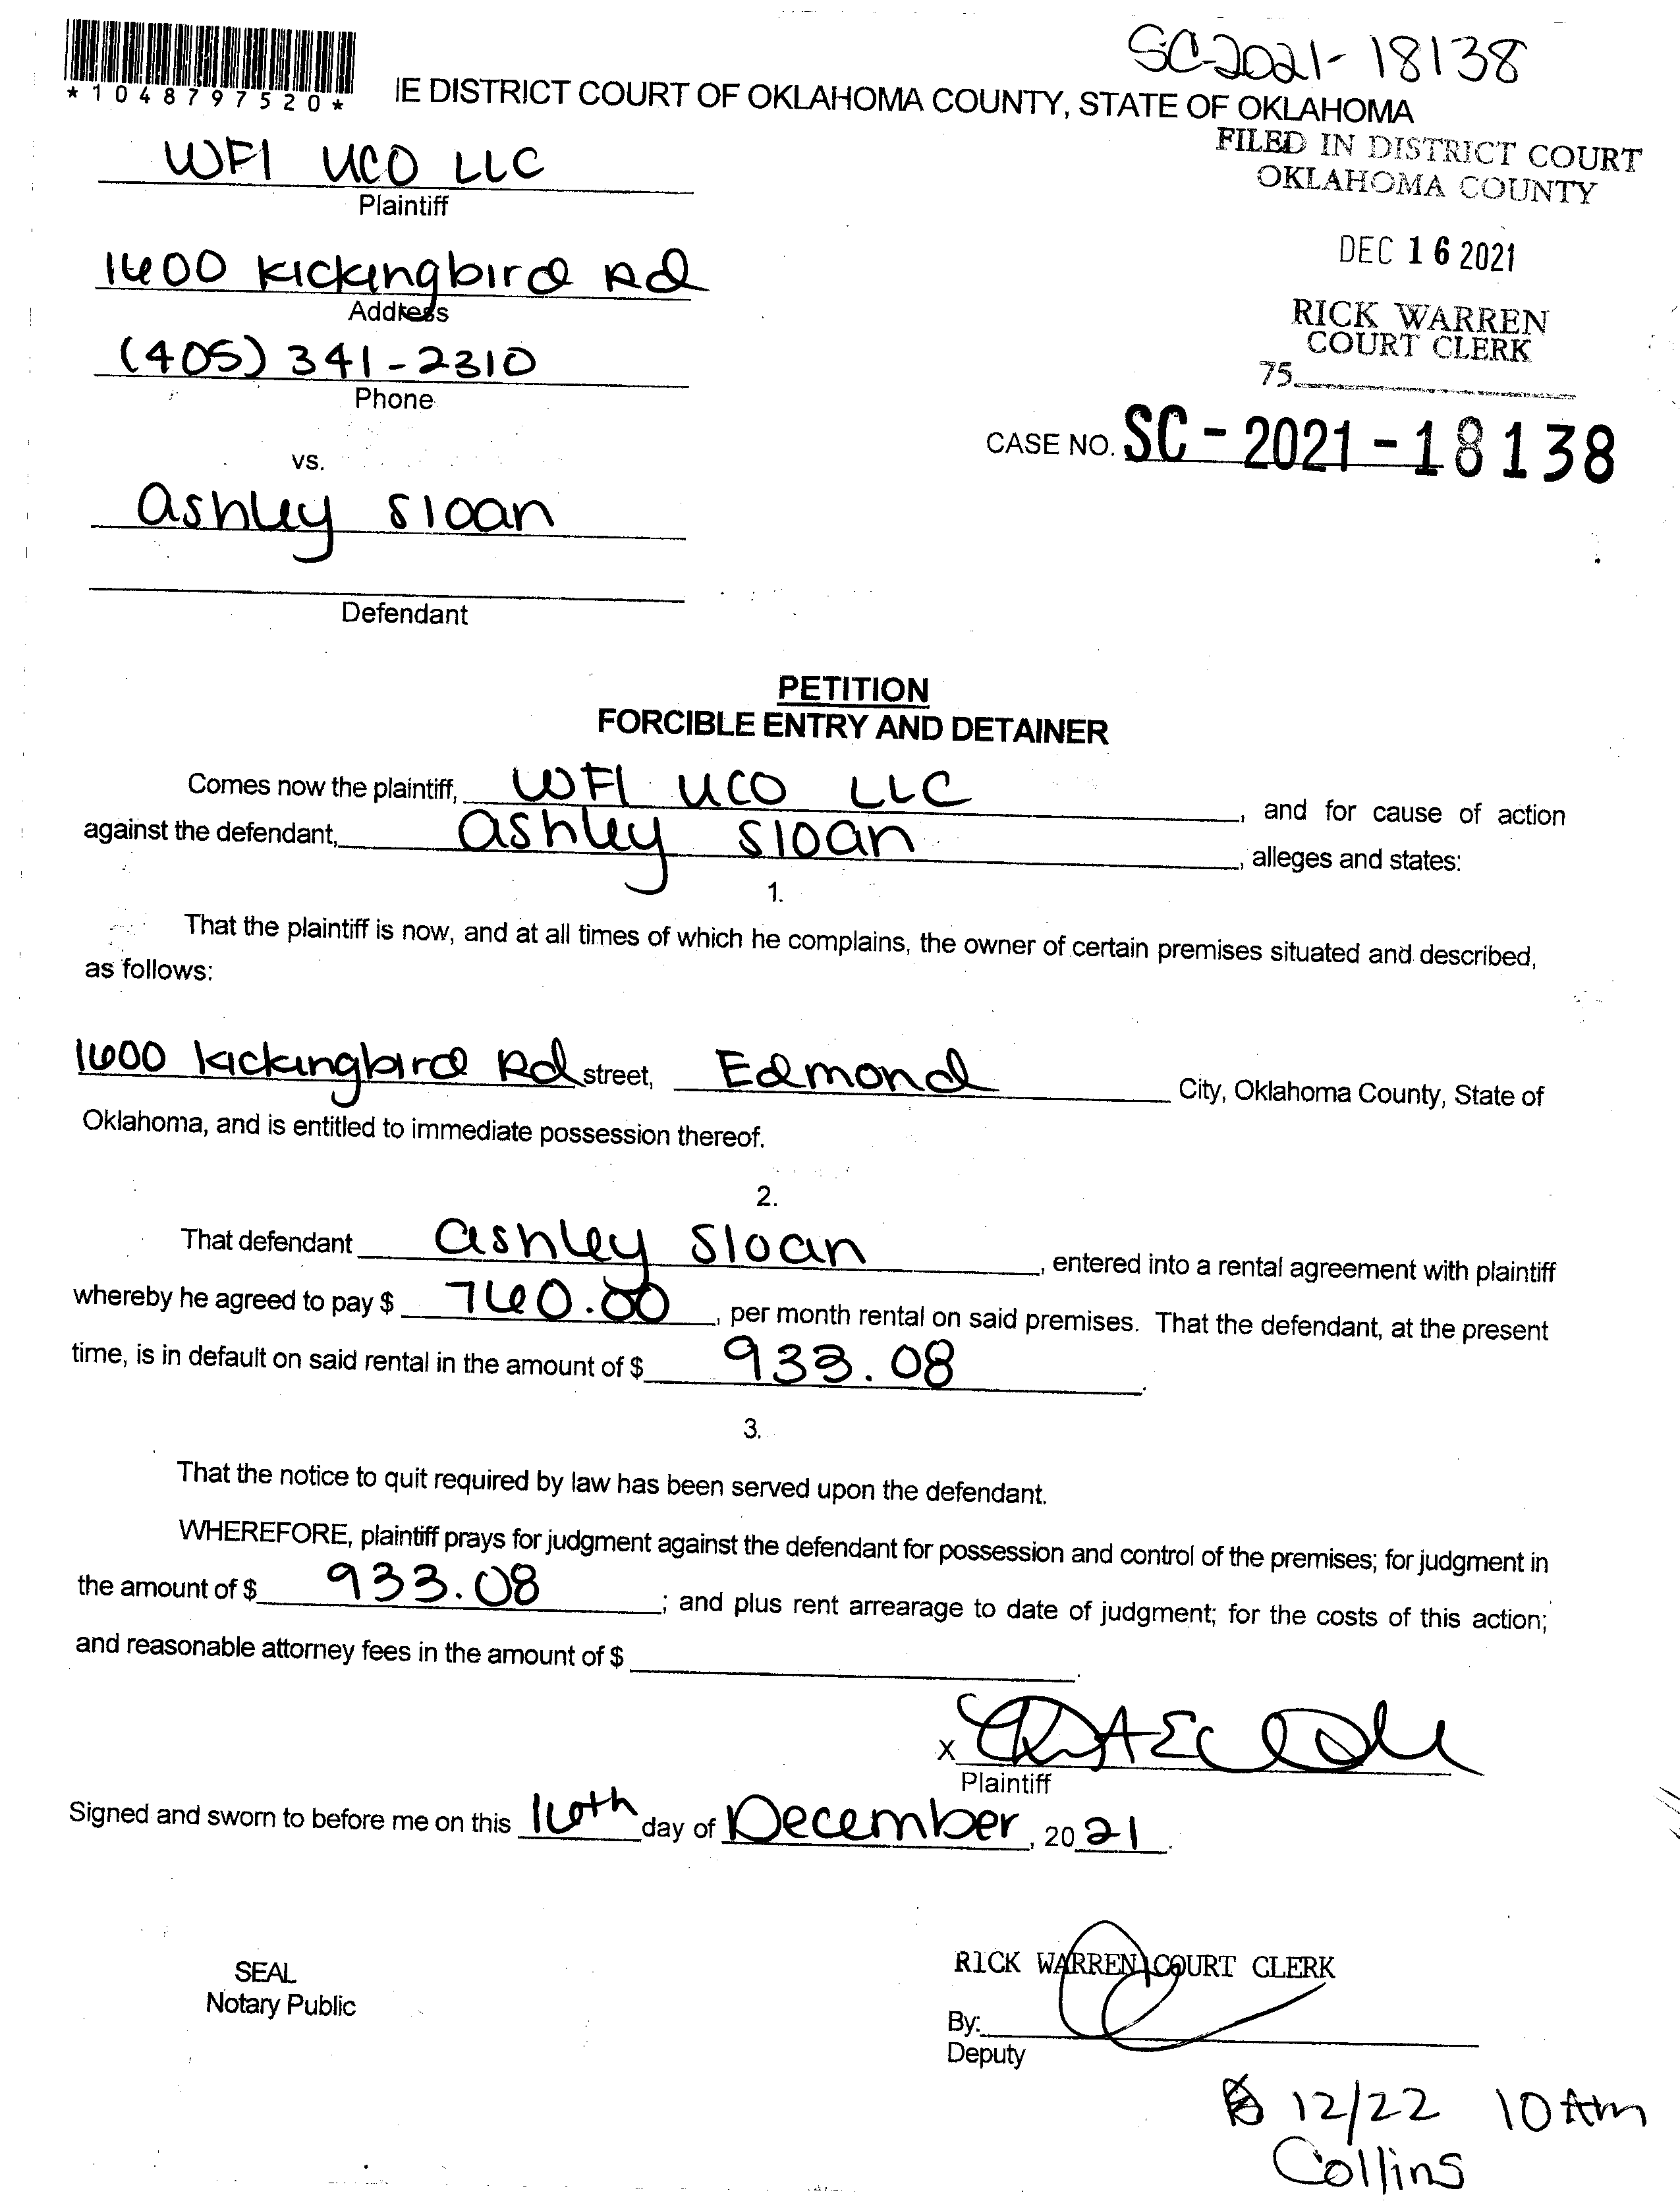 SC-2021-18138
*1048797520*
IE DISTRICT COURT OF OKLAHOMA COUNTY, STATE OF OKLAHOMA
FILED IN DISTRICT COURT
OKLAHOMA COUNTY
WFI UCO LLC
Plaintiff
DEC 16 2021
1600 Kickingbird Rd
Address
RICK WARREN
COURT CLERK
(405) 341-2310
75
Phone
CASE NO. SC-2021-18138
vs.
Ashley Sloan
Defendant
PETITION
FORCIBLE ENTRY AND DETAINER
Comes now the plaintiff, WFI UCO LLC, and for cause of action
against the defendant, Ashley Sloan, alleges and states:
1.
That the plaintiff is now, and at all times of which he complains, the owner of certain premises situated and described,
as follows:
1600 Kickingbird Rd street, Edmond City, Oklahoma County, State of
Oklahoma, and is entitled to immediate possession thereof.
2.
That defendant Ashley Sloan, entered into a rental agreement with plaintiff
whereby he agreed to pay $ 760.00, per month rental on said premises. That the defendant, at the present
time, is in default on said rental in the amount of $ 933.08.
3.
That the notice to quit required by law has been served upon the defendant.
WHEREFORE, plaintiff prays for judgment against the defendant for possession and control of the premises; for judgment in
the amount of $ 933.08; and plus rent arrearage to date of judgment; for the costs of this action;
and reasonable attorney fees in the amount of $ .
X
Plaintiff
Signed and sworn to before me on this 16th day of December, 2021.
SEAL
Notary Public
RICK WARREN, COURT CLERK
By:
Deputy
12/22 10 Am
Collins